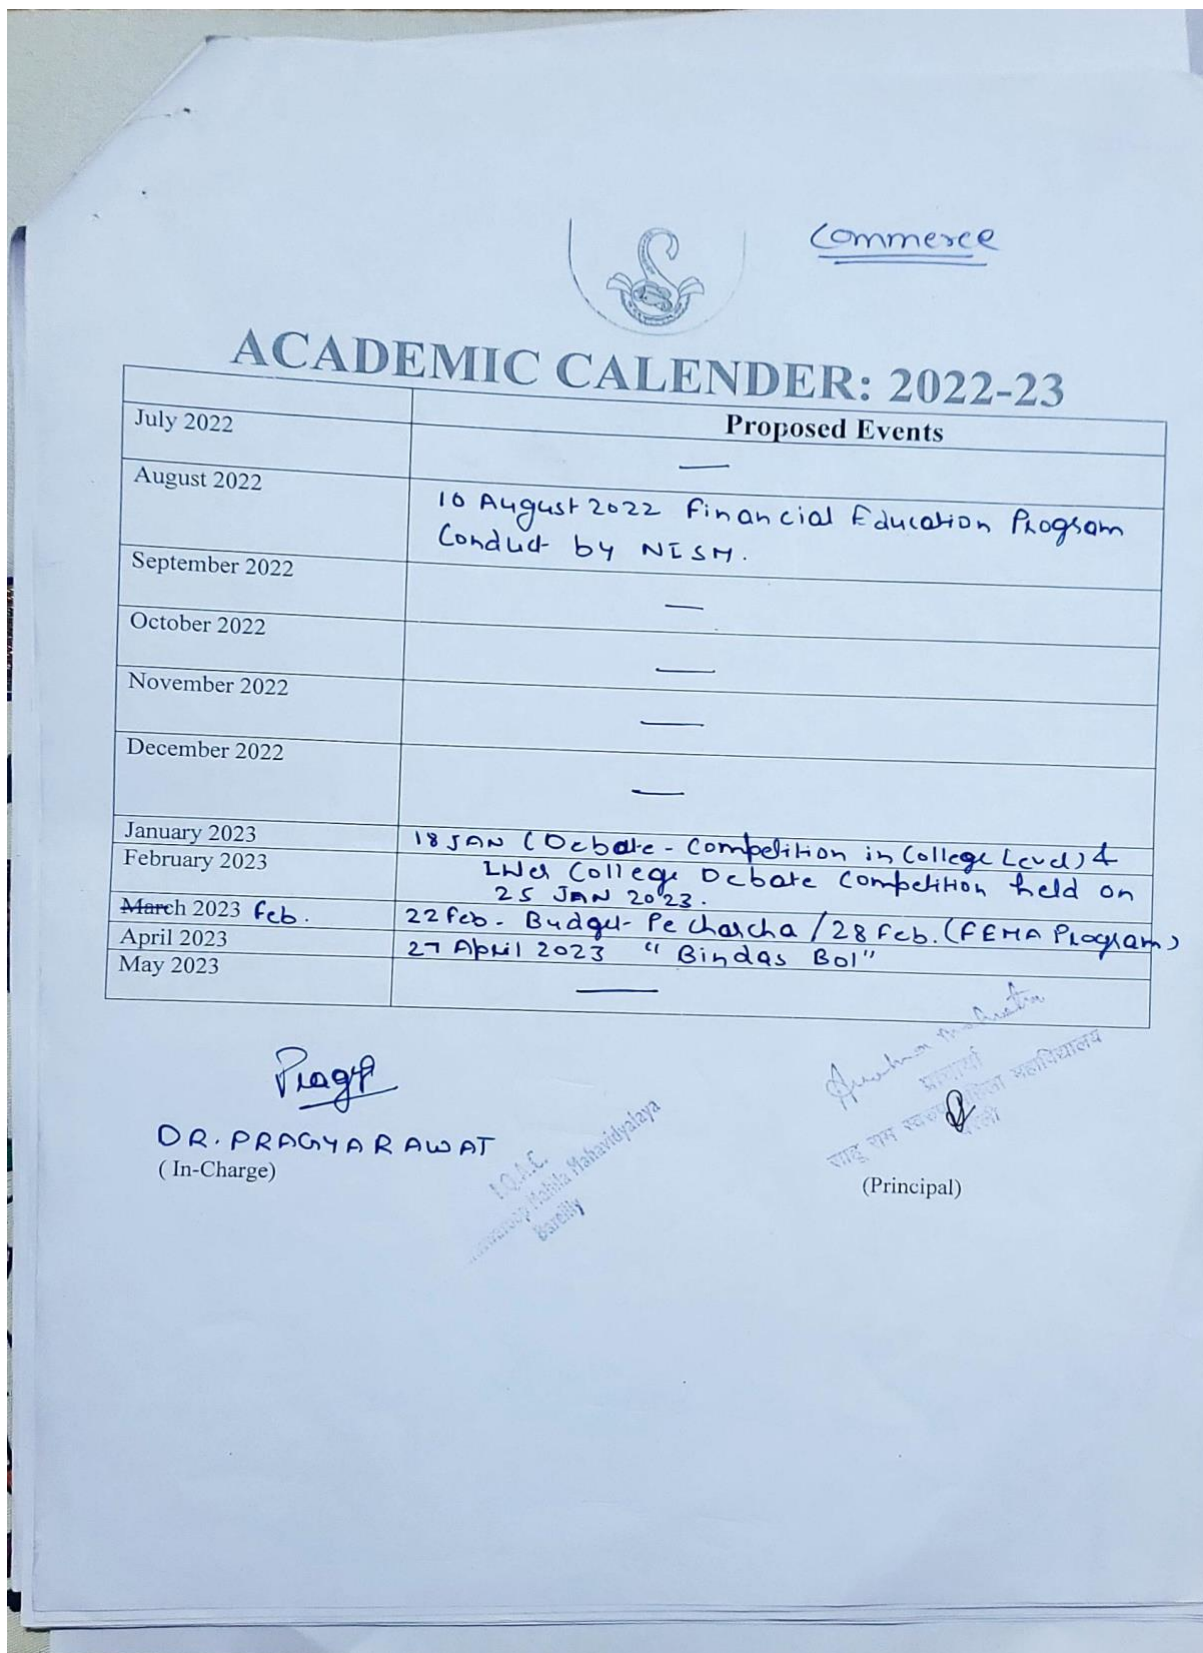 Commerce
ACADEMIC CALENDER: 2022-23
Proposed Events
July 2022 —
August 2022 10 August 2022 Financial Education Program
Conduct by NISM.
September 2022 —
October 2022 —
November 2022 —
December 2022 —
January 2023 18 JAN (Debate - Competition in College Level) &
February 2023 College Debate Competition held on
25 JAN 2023.
March 2023 Feb. 22 Feb. - Budget Pe Charcha / 28 Feb. (FEMA Program)
April 2023 27 April 2023 "Bindas Bol"
May 2023 —
DR. PRAGYA RAWAT
( In-Charge)
I.Q.A.C.
Mahila Mahavidyalaya
Bareilly
प्राचार्या
साहू राम स्वरूप महिला महाविद्यालय
बरेली
(Principal)